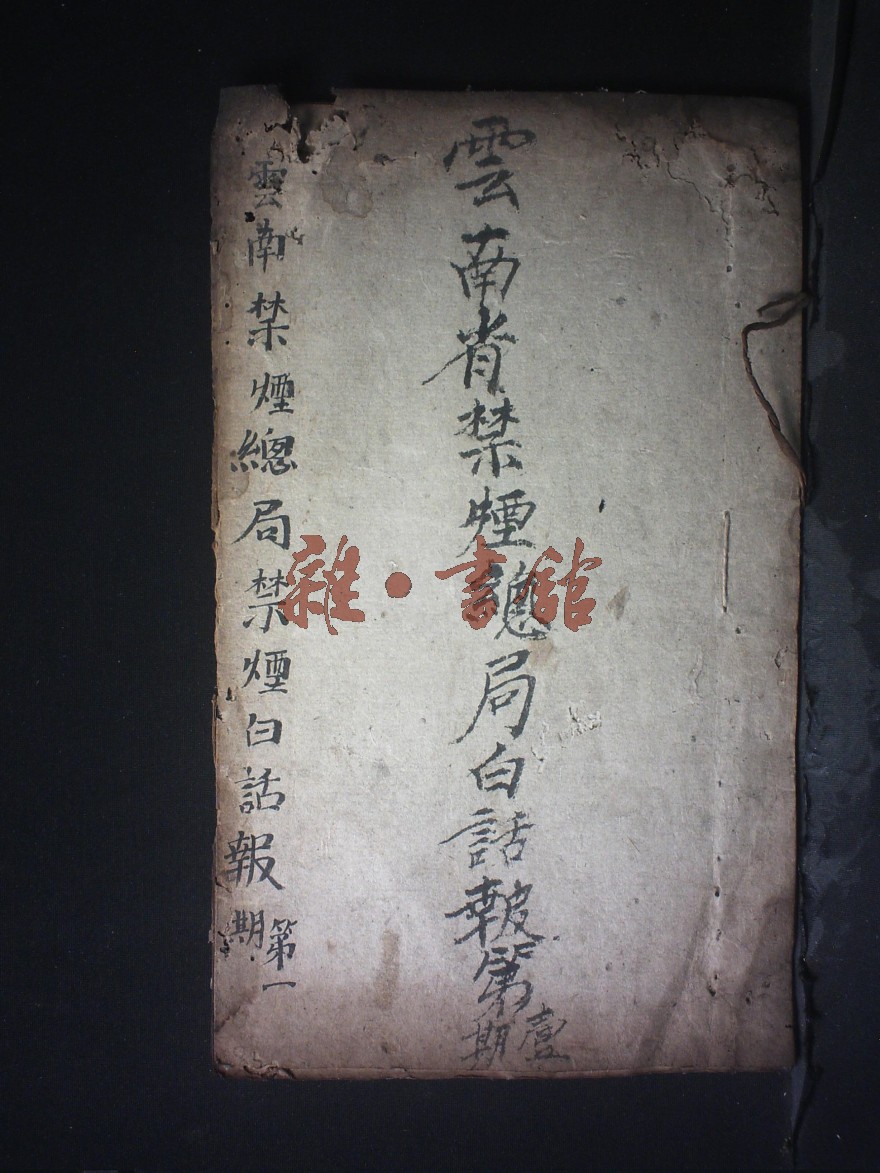 雲南省禁煙總局白話報第壹期
雲南禁煙總局禁煙白話報第一期
雜·書館